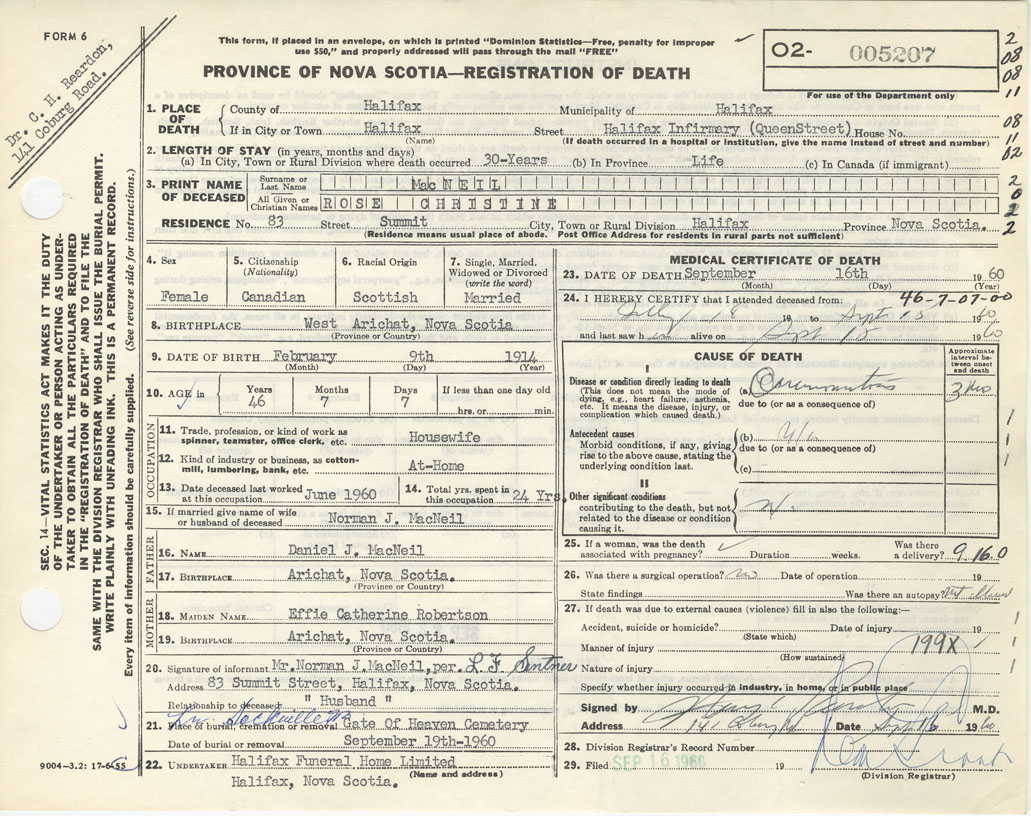 FORM 6
Dr. C. H. Reardon,
141 Coburg Road.
This form, if placed in an envelope, on which is printed "Dominion Statistics—Free, penalty for improper
use $50," and properly addressed will pass through the mail "FREE"
PROVINCE OF NOVA SCOTIA—REGISTRATION OF DEATH
O2- 005207
For use of the Department only
2
08
08
11
08
11
02
2
0
2
2
SEC. 14—VITAL STATISTICS ACT MAKES IT THE DUTY
OF THE UNDERTAKER OR PERSON ACTING AS UNDER-
TAKER TO OBTAIN ALL THE PARTICULARS REQUIRED
IN THE "REGISTRATION OF DEATH" AND TO FILE THE
SAME WITH THE DIVISION REGISTRAR WHO SHALL ISSUE THE BURIAL PERMIT.
WRITE PLAINLY WITH UNFADING INK. THIS IS A PERMANENT RECORD.
Every item of information should be carefully supplied. (See reverse side for instructions.)
1. PLACE OF DEATH
County of Halifax Municipality of Halifax
If in City or Town Halifax Street Halifax Infirmary (QueenStreet) House No.
(Name) (If death occurred in a hospital or institution, give the name instead of street and number)
2. LENGTH OF STAY (in years, months and days)
(a) In City, Town or Rural Division where death occurred 30-Years (b) In Province Life (c) In Canada (if immigrant)
3. PRINT NAME OF DECEASED
Surname or Last Name MacNEIL
All Given or Christian Names ROSE CHRISTINE
RESIDENCE No. 83 Street Summit City, Town or Rural Division Halifax Province Nova Scotia.
(Residence means usual place of abode. Post Office Address for residents in rural parts not sufficient)
4. Sex
Female
5. Citizenship
(Nationality)
Canadian
6. Racial Origin
Scottish
7. Single, Married,
Widowed or Divorced
(write the word)
Married
8. BIRTHPLACE West Arichat, Nova Scotia
(Province or Country)
9. DATE OF BIRTH February 9th 1914
(Month) (Day) (Year)
10. AGE in
Years 46
Months 7
Days 7
If less than one day old
hrs. or min.
OCCUPATION
11. Trade, profession, or kind of work as
spinner, teamster, office clerk, etc. Housewife
12. Kind of industry or business, as cotton-
mill, lumbering, bank, etc. At-Home
13. Date deceased last worked
at this occupation June 1960
14. Total yrs. spent in
this occupation 24 Yrs.
15. If married give name of wife
or husband of deceased Norman J. MacNeil
FATHER
16. NAME Daniel J. MacNeil
17. BIRTHPLACE Arichat, Nova Scotia.
(Province or Country)
MOTHER
18. MAIDEN NAME Effie Catherine Robertson
19. BIRTHPLACE Arichat, Nova Scotia.
(Province or Country)
20. Signature of informant Mr. Norman J. MacNeil, per. L. F. Sentner
Address 83 Summit Street, Halifax, Nova Scotia.
Relationship to deceased " Husband "
21. Place of burial, cremation or removal Gate Of Heaven Cemetery
Date of burial or removal September 19th-1960
22. UNDERTAKER Halifax Funeral Home Limited
(Name and address)
Halifax, Nova Scotia.
9004-3.2: 17-6-55
MEDICAL CERTIFICATE OF DEATH
23. DATE OF DEATH September 16th 1960
(Month) (Day) (Year)
46-7-07-00
24. I HEREBY CERTIFY that I attended deceased from:
July 18 1960 to Sept 15 1960
and last saw h alive on Sept 15 1960
CAUSE OF DEATH
Approximate interval between onset and death
I
Disease or condition directly leading to death
(This does not mean the mode of
dying, e.g., heart failure, asthenia,
etc. It means the disease, injury, or
complication which caused death.)
(a) Carcinomatosis
due to (or as a consequence of)
Antecedent causes
Morbid conditions, if any, giving
rise to the above cause, stating the
underlying condition last.
(b)
due to (or as a consequence of)
(c)
II
Other significant conditions
contributing to the death, but not
related to the disease or condition
causing it.
1
1
1
25. If a woman, was the death
associated with pregnancy? Duration weeks. Was there
a delivery? 9.16.0
26. Was there a surgical operation? no Date of operation 19
State findings Was there an autopsy?
27. If death was due to external causes (violence) fill in also the following:—
Accident, suicide or homicide? Date of injury 19
(State which)
Manner of injury 199X
(How sustained)
Nature of injury
Specify whether injury occurred in industry, in home, or in public place
1
1
1
Signed by M.D.
Address Date Sept 16 1960
28. Division Registrar's Record Number
29. Filed SEP 16 1960 19
(Division Registrar)